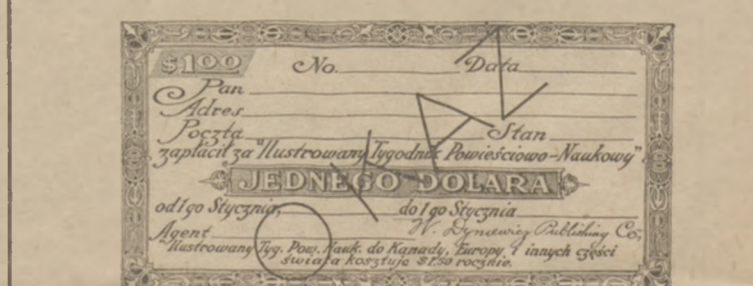 $1.00 No. Data
Pan
Adres
Poczta Stan
zapłacił za "Ilustrowany Tygodnik Powieściowo-Naukowy"
JEDNEGO DOLARA
od 1go Stycznia, do 1go Stycznia
Agent W. Dyniewicz Publishing Co.,
"Ilustrowany Tyg. Pow. Nauk. do Kanady, Europy i innych części
świata kosztuje $1.50 rocznie.